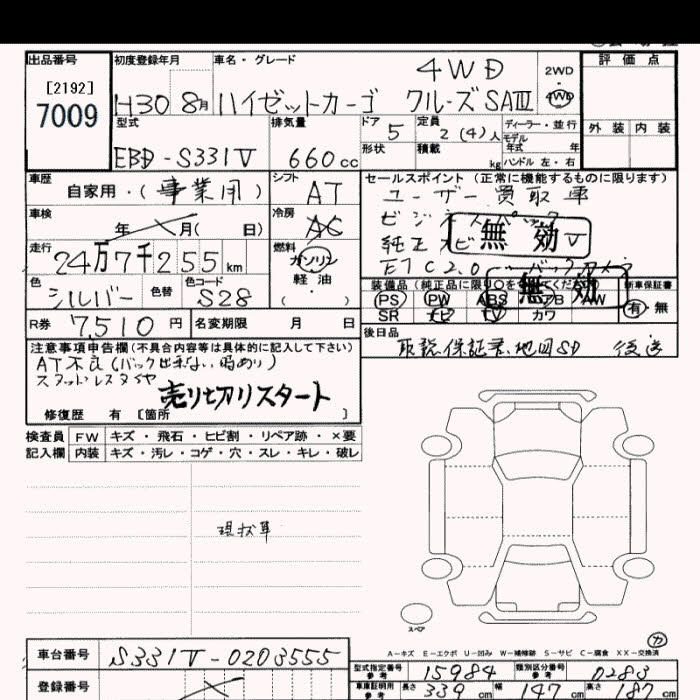 出品番号 初度登録年月 車名・グレード 評価点
[2192]
7009
H30 8月 ハイゼットカーゴ 4WD クルーズSAⅢ 2WD・4WD
型式 排気量 ドア 定員 ディーラー・並行 外装 内装
EBD-S331V 660cc 5 2(4)人 モデル年式 年
形状 積載 kg ハンドル 左・右
車歴 シフト セールスポイント(正常に機能するものに限ります)
自家用・(事業用) AT ユーザー買取車
車検 冷房 ビジネスパック
年 月( 日) AC 純正ナビ TV
無効
走行 燃料 ETC2.0
24万7千255km ガソリン
軽油
無効
色 色替 色コード 装備品
シルバー S28 PS PW ABS AW 新車保証書
( ・ ) SR ナビ TV カワ 有・無
R券 7,510円 名変期限 月 日 後日品
取説 保証書 地図SD 後送
注意事項申告欄(不具合内容等は具体的に記入して下さい)
AT不良(バック出来ない時あり)
売り切りスタート
修復歴 有 [箇所 ]
検査員 FW キズ・飛石・ヒビ割・リペア跡・×要
記入欄 内装 キズ・汚レ・コゲ・穴・スレ・キレ・破レ
現状車
スペア
カ
A-キズ E-エクボ U-凹み W-補修跡 S-サビ C-腐食 XX-交換済
車台番号 S331V-0203555
型式指定番号 参考 15984 類別区分番号 参考 0283
登録番号
車庫証明用 参考 長さ 339cm 幅 147cm 高さ 187cm